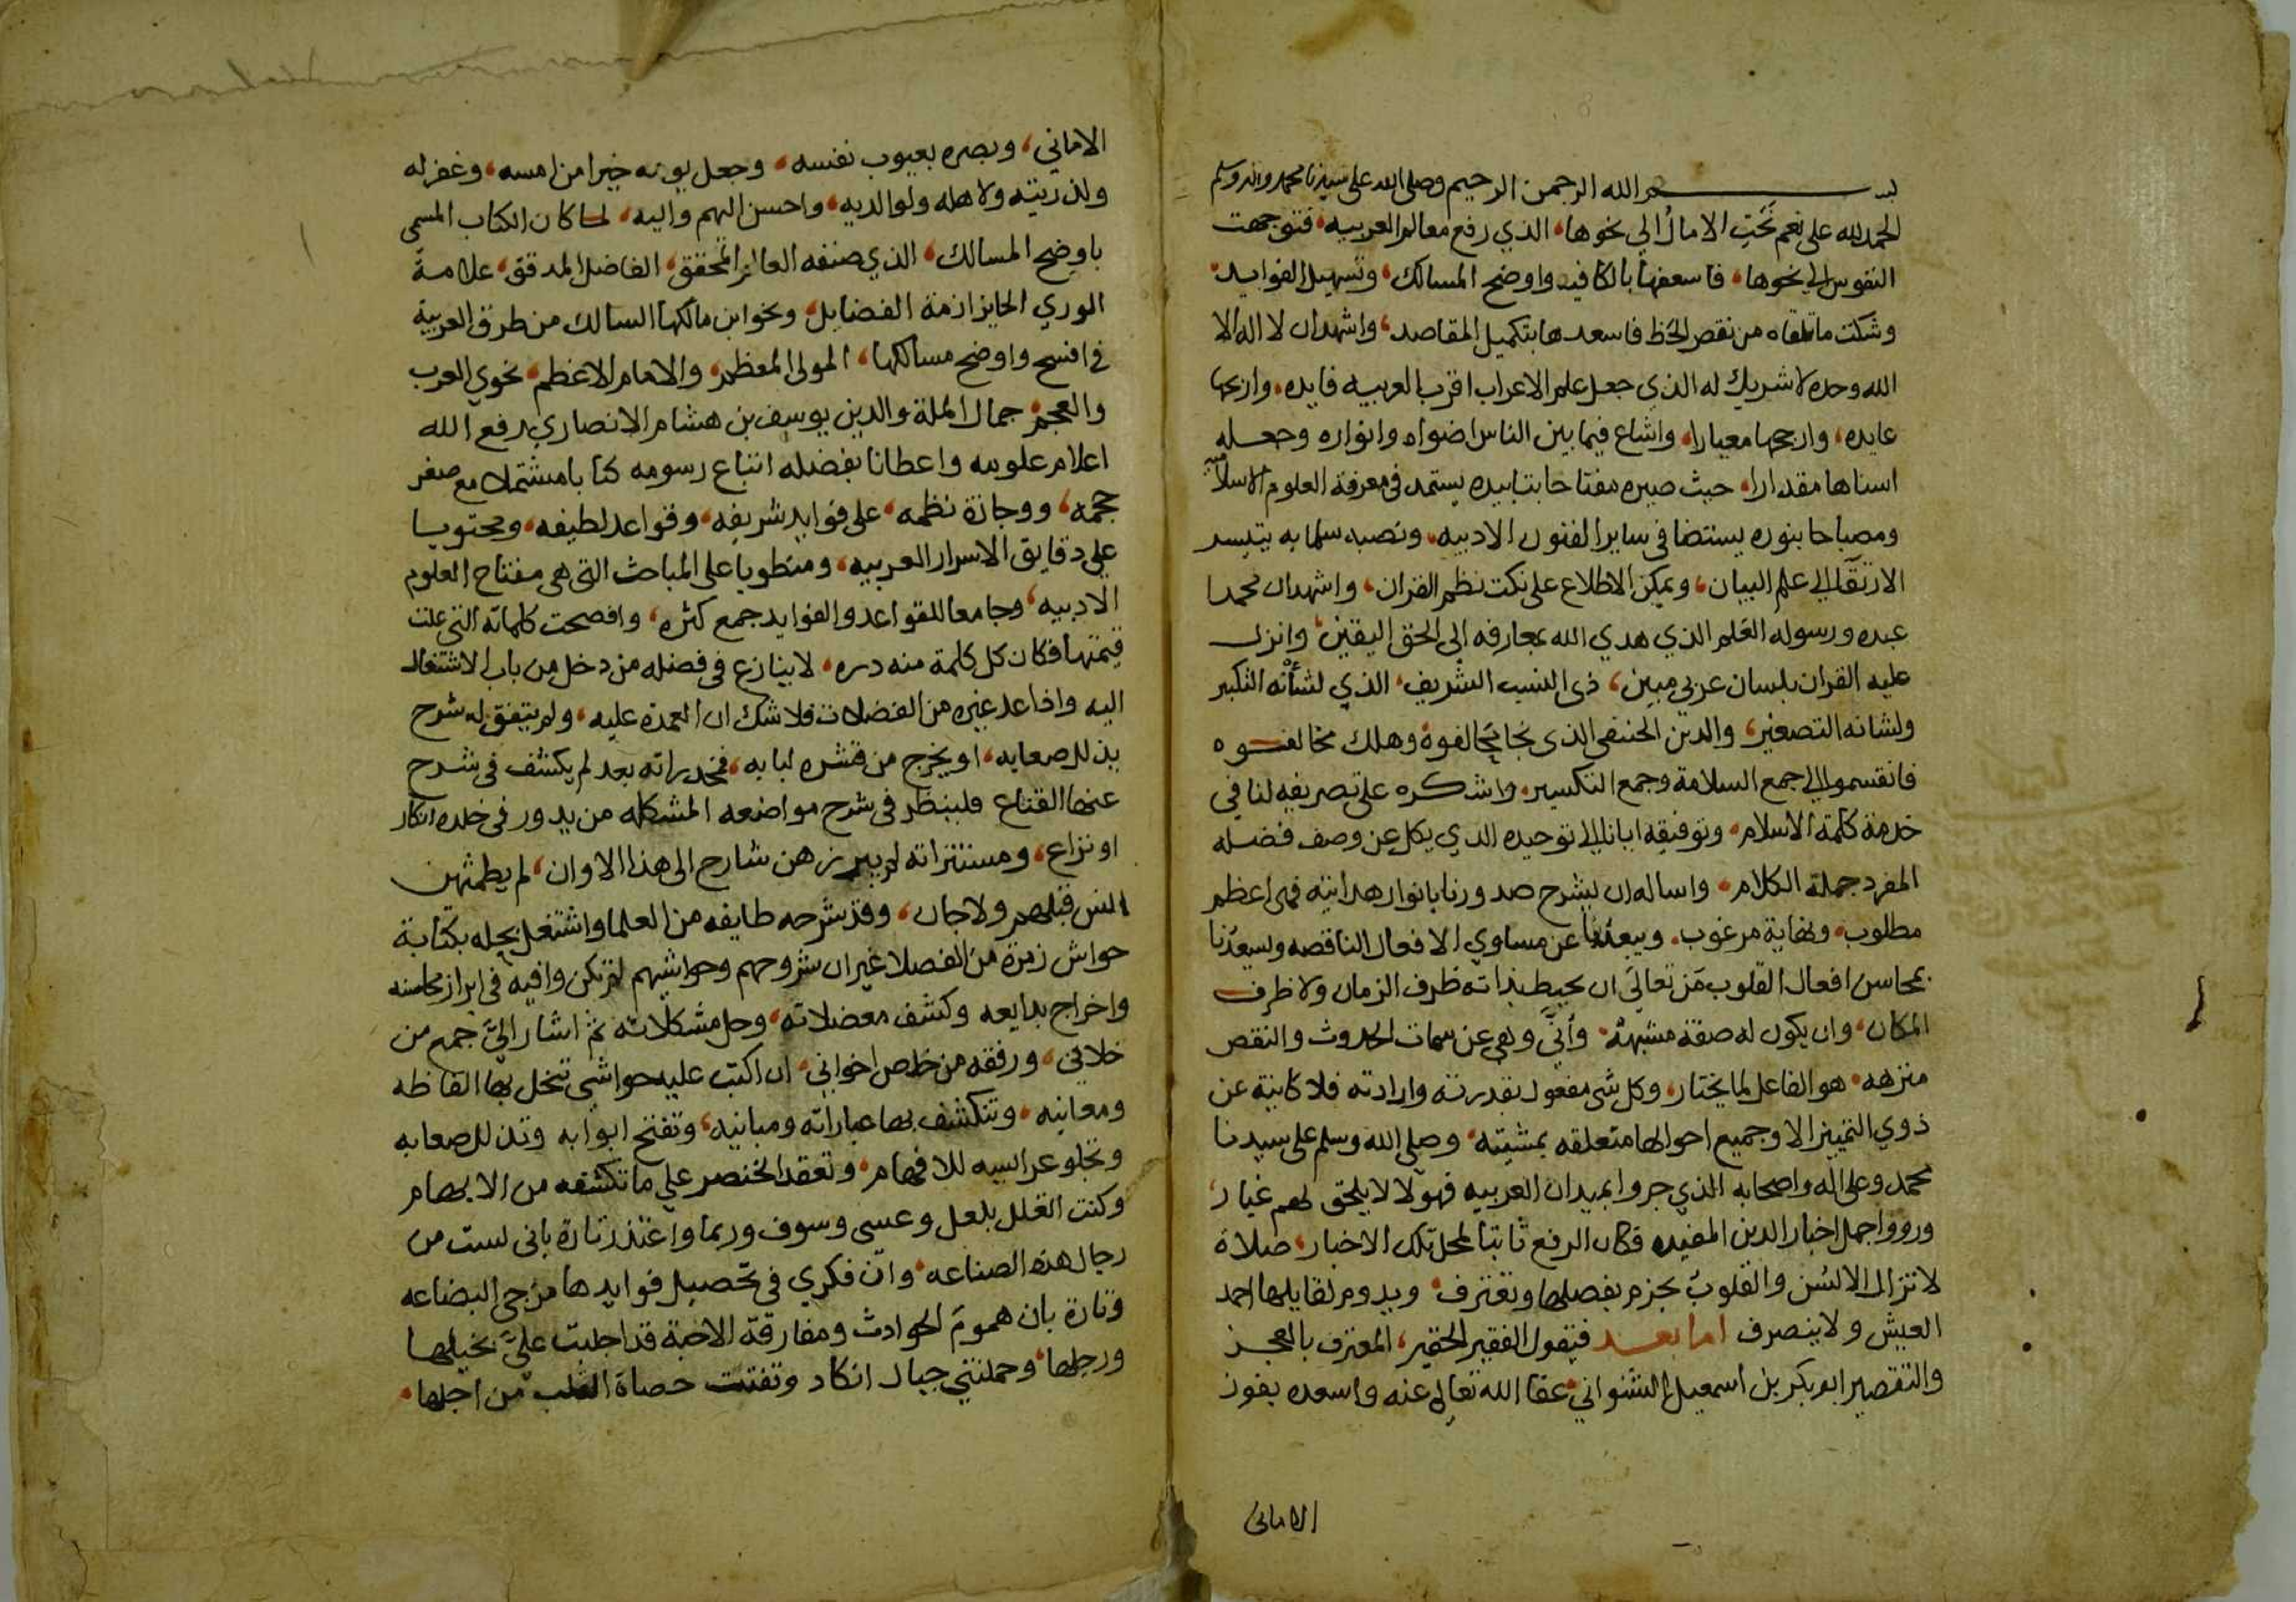 بسم الله الرحمن الرحيم وصلى الله على سيدنا محمد واله وسلم
الحمد لله على نعم نحت الامال الي نحوها، الذي رفع معالم العربيه، فتوجهت
النفوس الي نحوها، فاسعفها بالكافيه واوضح المسالك، وتسهيل الفوايد،
وشكت ما تلقاه من نقص الحظ فاسعدها بتكميل المقاصد، واشهد ان لا اله الا
الله وحده لا شريك له الذي جعل علم الاعراب اقرب العربيه فايده، واربحها
عايده، وارجحها معيارا، واشاع فيما بين الناس اضواه وانواره وجعله
اسناها مقدارا، حيث صيره مفتاحا بتاييده يستمد في معرفة العلوم الاسلاميه
ومصباحا بنوره يستضا في ساير الفنون الادبيه، ونصبه سلما به يتيسر
الارتقآ الى علم البيان، ويمكن الاطلاع على نكت نظم القران، واشهد ان محمدا
عبده ورسوله العلم الذي هدي الله بمعارفه الى الحق اليقين، وانزل
عليه القران بلسان عربي مبين، ذي النسب الشريف، الذي لشأنه التكبير
ولشانه التصغير، والدين الحنفي الذي نجا نجا لفوه وهلك مخالفوه
فانقسموا الى جمع السلامة وجمع التكسير، واشكره على تصريفه لنا في
خدمة كلمة الاسلام، وتوفيقه ايانا الى توحيده الذي يكل عن وصف فضله
المفرد جملة الكلام، واساله ان يشرح صدورنا بانوار هدايته فهى اعظم
مطلوب، ونهاية مرغوب، ويبعدنا عن مساوي الافعال الناقصه ويسعدنا
بمحاسن افعال القلوب من تعالى ان يحيط بذاته ظرف الزمان ولا ظرف
المكان، وان يكون له صفة مشبهة، وأنّي وهي عن سمات الحدوث والنقص
منزهه، هو الفاعل لما يختار، وكل شي مفعول بقدرته وارادته فلا كاينة عن
ذوي التمييز الا وجميع احوالها متعلقه بمشيته، وصلى الله وسلم على سيدنا
محمد وعلى اله واصحابه الذي جروا بميدان العربيه فهولا لا يلحق لهم غبار،
ورووا جمل اخبار الدين المفيده فكان الرفع ثابتا لمحل تلك الاخبار، صلاة
لا تزال الالسن والقلوب بجزم بفصلها وتعترف، ويدوم لقايلها احمد
العيش ولا ينصرف اما بعد فيقول الفقير الحقير، المعترف بالعجز
والتقصير ابو بكر بن اسمعيل الشنواني عفا الله تعالى عنه واسعده بفوز
الاماني
الاماني، وبصره بعيوب نفسه، وجعل يومه خيرا من امسه، وغفر له
ولذريته ولاهله ولوالديه، واحسن اليهم واليه، لما كان الكتاب المسمى
باوضح المسالك، الذي صنفه العالم المحقق، الفاضل المدقق، علامة
الوري الحايز ازمة الفضايل، ونحو ابن مالكها السالك من طرق العربية
في افسح واوضح مسالكها، المولى المعظم، والامام الاعظم، نحوي العرب
والعجم، جمال الملة والدين يوسف بن هشام الانصاري، رفع الله
اعلام علومه واعطانا بفضله اتباع رسومه كتابا مشتملا مع صغر
حجمه، ووجازة نظمه، على فوايد شريفه، وقواعد لطيفه، ومحتويا
علي دقايق الاسرار العربيه، ومنطويا على المباحث التي هي مفتاح العلوم
الادبيه، وجامعا للقواعد والفوايد جمع كثره، وافصحت كلماته التي علت
قيمتها فكان كل كلمة منه دره، لا ينازع في فضله من دخل من باب الاشتغال
اليه واذا عد غيره من الفضلات فلا شك ان العمدة عليه، ولم يتفق له شرح
يذلل صعابه، او يخرج من قشره لبابه، فمخدراته بعد لم يكشف في شرح
عنها القناع فلينظر في شرح مواضعه المشكله من يدور في خلده انكار
او نزاع، ومستتراته لم يبرزهن شارح الى هذا الاوان، لم يطمثهن
انس قبلهم ولا جان، وقد شرحه طايفه من العلما واشتغل بحله بكتابة
حواش زمرة من الفضلا غير ان شروحهم وحواشيهم لم تكن وافيه في ابراز محاسنه
واخراج بدايعه وكشف معضلاته، وحل مشكلاته ثم اشار اليّ جمع من
خلاني، ورفقه من خلص اخواني، ان اكتب عليه حواشي تنحل بها الفاظه
ومعانيه، وتنكشف بها عباراته ومبانيه، وتفتح ابوابه وتذلل صعابه
وتجلو عرايسه للافهام، وتعقد الخنصر علي ما تكشفه من الابهام
وكنت اتعلل بلعل وعسى وسوف وربما واعتذر تارة باني لست من
رجال هذه الصناعه، وان فكري في تحصيل فوايدها مزجي البضاعه
وتارة بان هموم الحوادث ومفارقة الاحبة قد اجلبت عليّ بخيلها
ورجلها، وحملتني جبال انكاد وتفتتت حصاة القلب من اجلها،